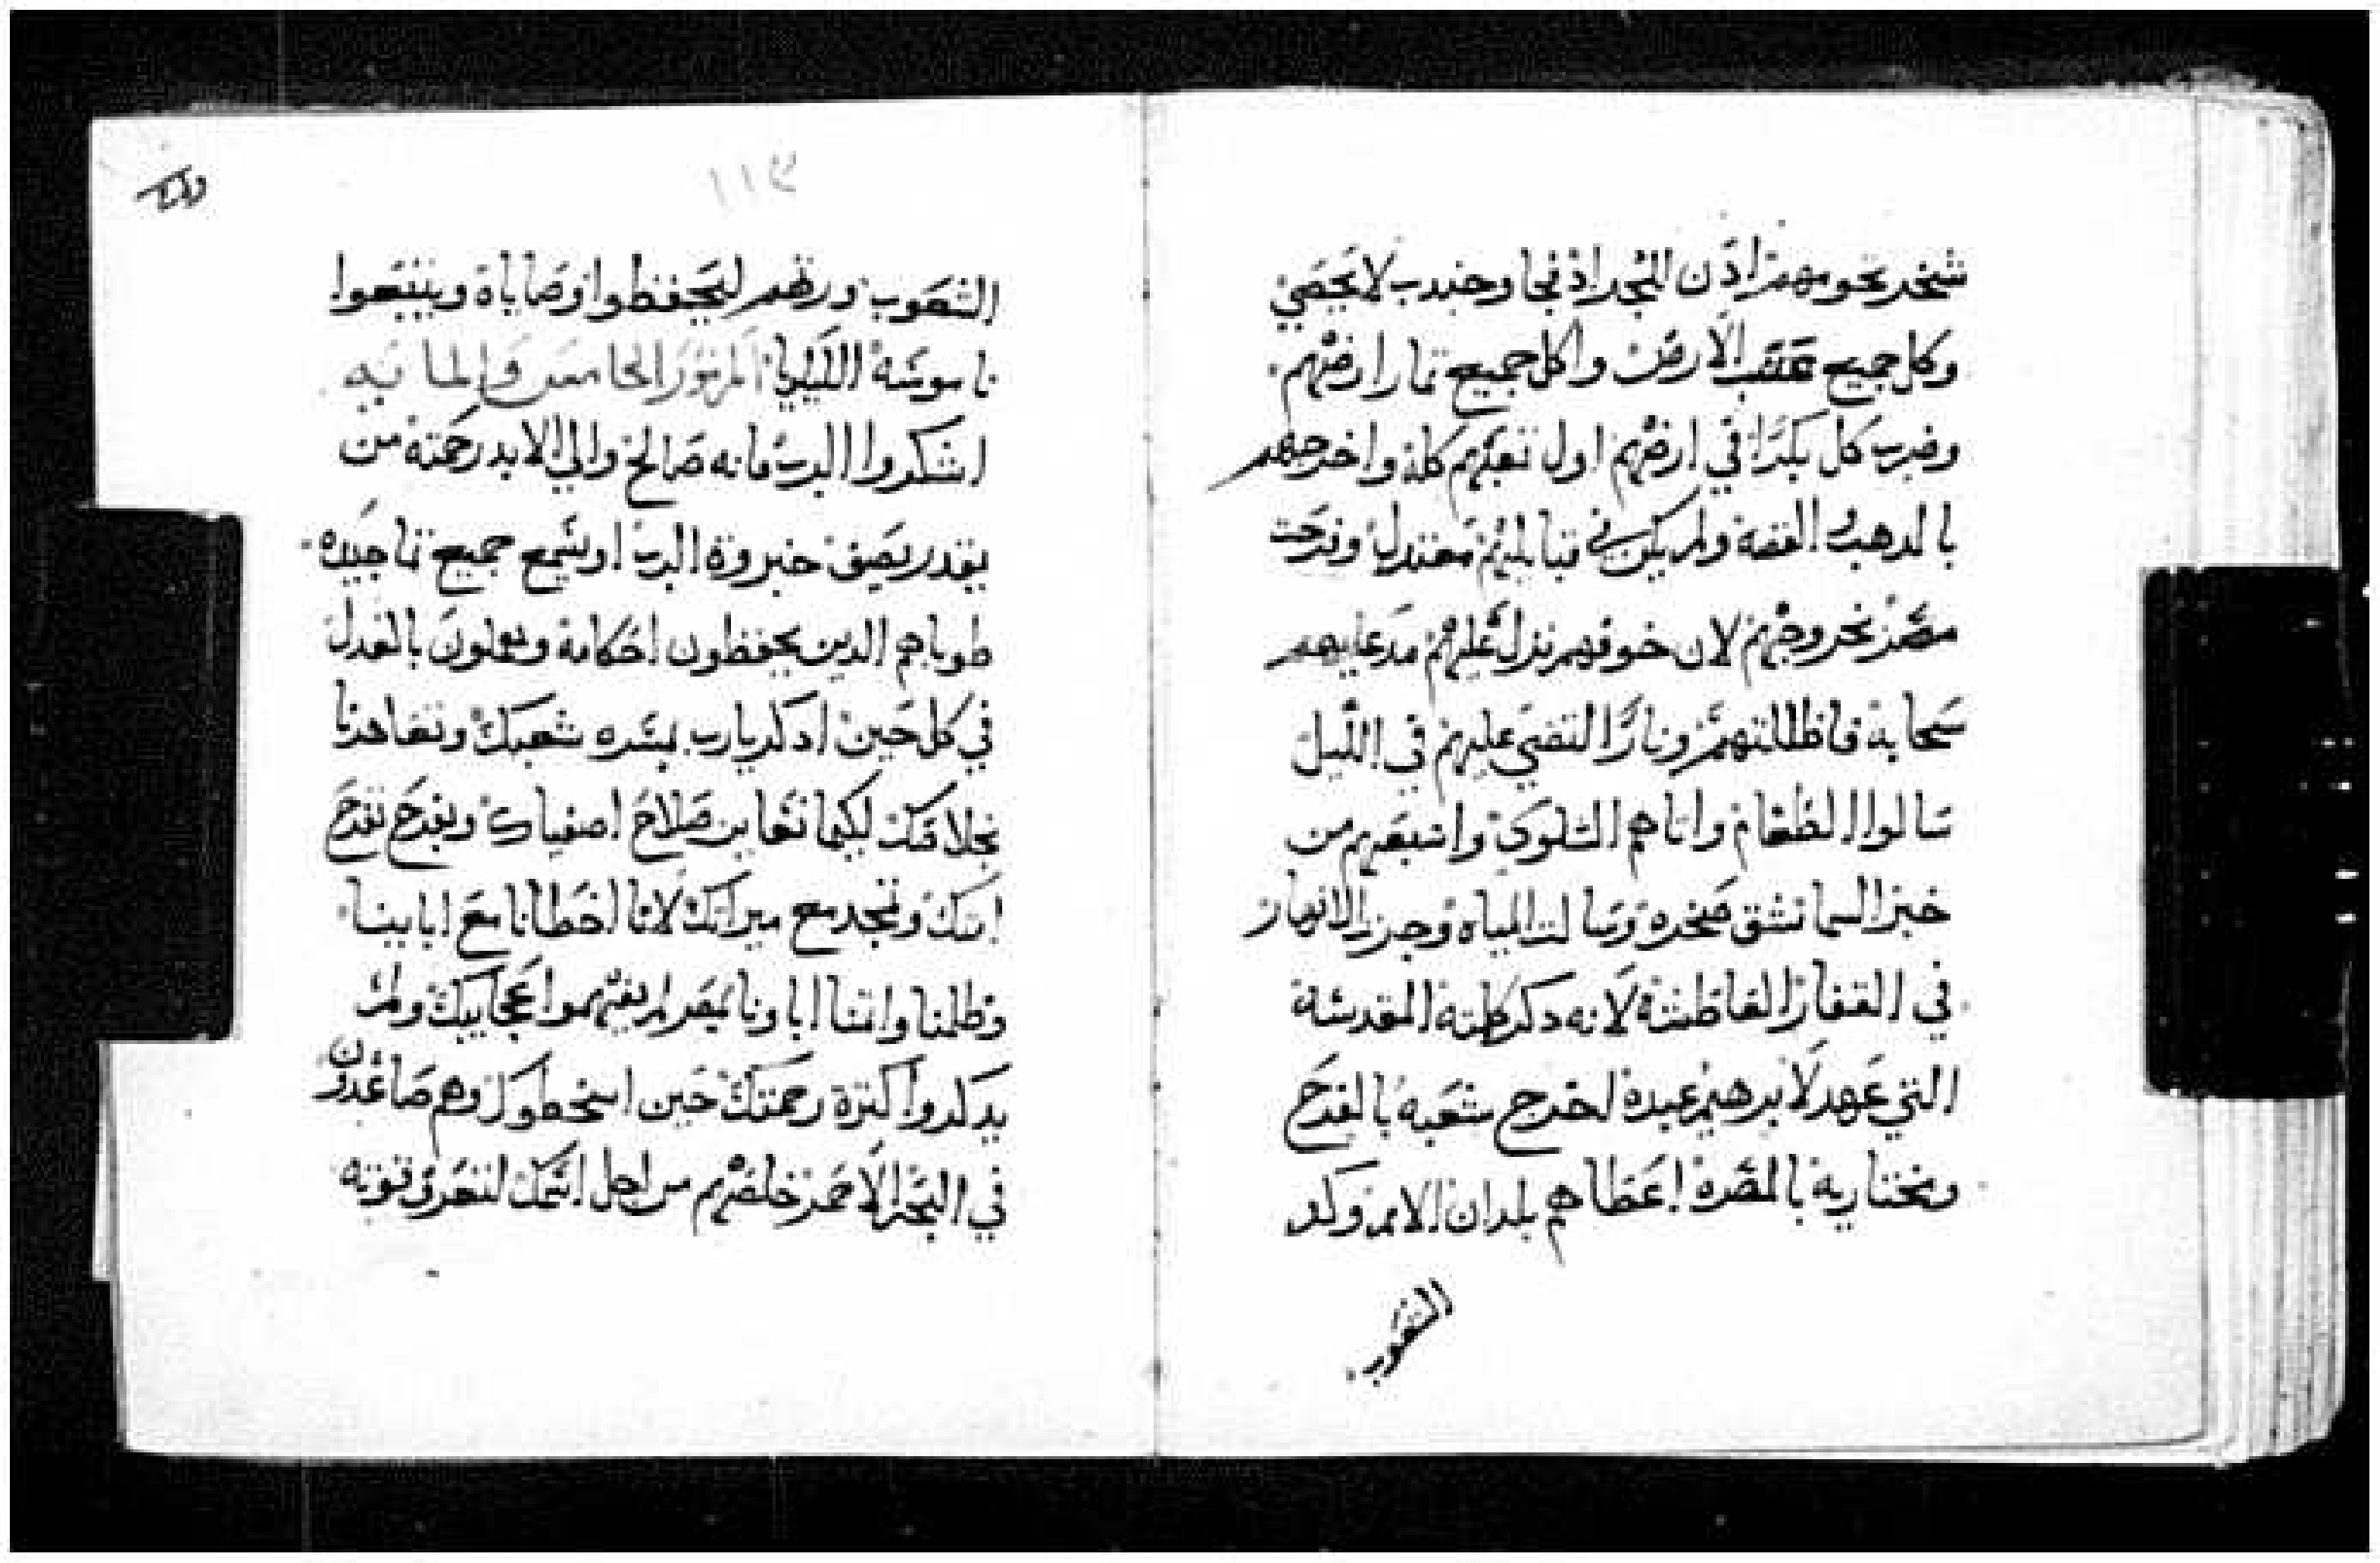 شجر تحومهم اذن الجراد فجا وجندب لا يحصي
وكل جميع عشب الارض واكل جميع تمار ارضهم
وضرب كل بكرا في ارضهم اول تعبهم كله واخرجهم
بالدهب الفضه ولم يكن في قبايلهم معتدل وفرحت
مصر بخروجهم لان خوفهم نزل عليهم مد عليهم
سحابة فاظلتهم ونارا لتضي عليهم في الليل
سالوا الطعام واتاهم السلوي واشبعهم من
خبز السما نشق صخره وسالت المياه وجرت الانهار
في القفار العاطشة لانه دكر كلمته المقدسة
التي عهد لابرهيم عبده اخرج شعبه بالفرح
ومختاريه بالمسره اعطاهم بلدان الامم وكد
الشعوب
١١٣
الشعوب ورثهم ليحفظوا وصاياه ويتبعوا
ناموسه الليلويا المزمور الخامس والمايه
اشكروا الرب فانه صالح والي الابد رحمته من
يقدر يصف جبروة الرب او يسمع جميع تماجيده
طوباهم الدين يحفظون احكامه ويعملون بالعدل
في كل حين ادكر يارب بمسره شعبك وتعاهدنا
بخلاصك لكيما نعاين صلاح اصفياك ونفرح بفرح
امتك ونمجد مع ميراتك لانا اخطانا مع اباينا
وظلمنا واتمنا اباونا بمصر لم يفهموا عجايبك ولم
يدكروا كترة رحمتك حين اسخطوك وهم صاعدون
في البحر الاحمر خلصهم من اجل اسمك لتعرف قوته